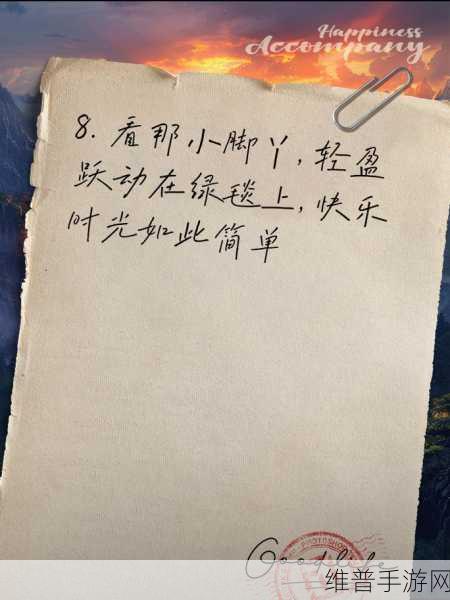 Happiness
Accompany
8. 看那小脚丫，轻盈
跃动在绿毯上，快乐
时光如此简单
PHOTOSHO
Good life
维普手游网